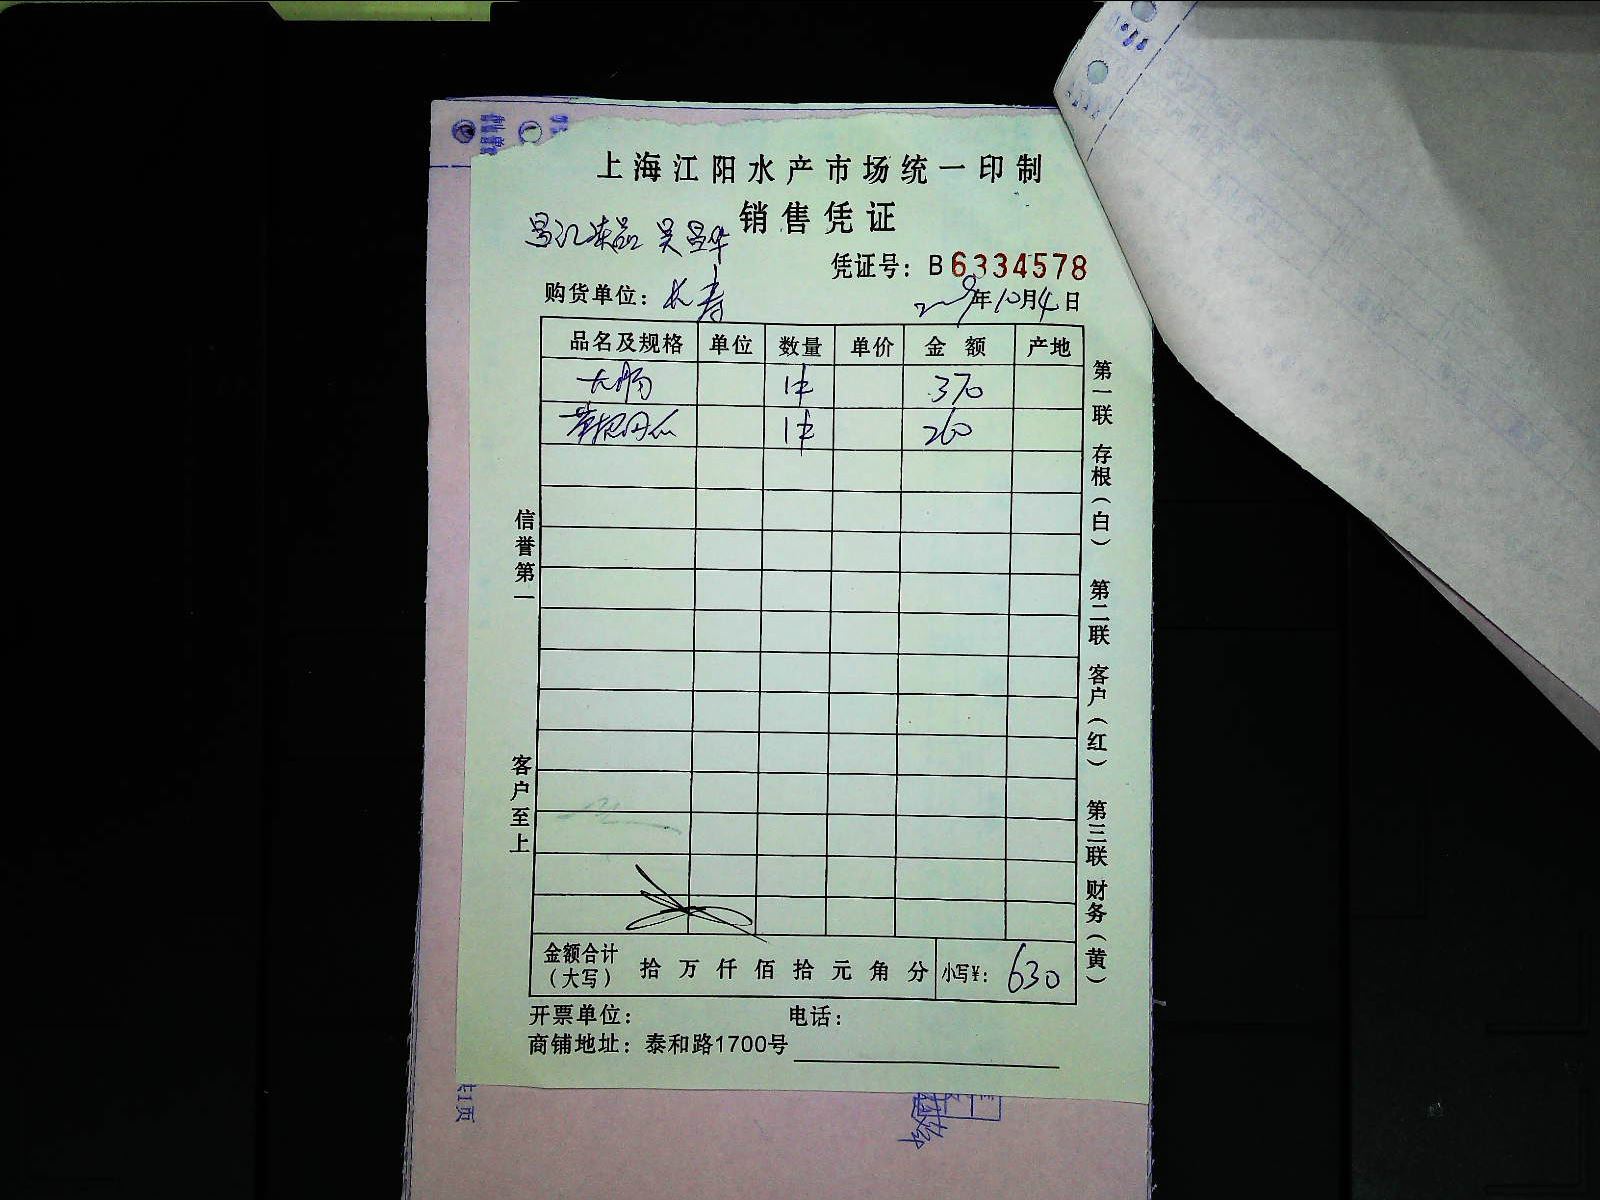 上海江阳水产市场统一印制
销售凭证
昌汇冻品 吴昌华
凭证号: B 6334578
购货单位: 长寿
2009年10月4日
品名及规格 单位 数量 单价 金额 产地
大肠 1件 370
1件 260
信誉第一
客户至上
第一联 存根(白) 第二联 客户(红) 第三联 财务(黄)
金额合计(大写) 拾万仟佰拾元角分 小写¥: 630
开票单位: 电话:
商铺地址: 泰和路1700号